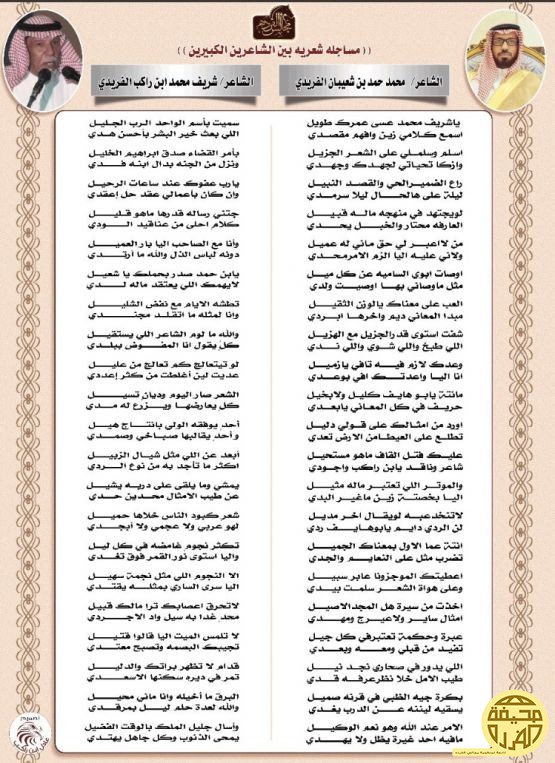 ((مساجله شعريه بين الشاعرين الكبيرين))
الشاعر/ محمد حمد بن شعيبان الفريدي
ياشريف محمد عسى عمرك طويل
اسمع كلامي زين وافهم مقصدي
اسلم وسلملي على الشعر الجزيل
وازكا تحياتي لجهدك وجهدي
راع الضمير الحي والقصد النبيل
ليلة على هالحال ليلا سرمدي
لويجتهد في منهجه ماله قبيل
العارفه محتار والخبل يحدي
من لااعبر لي حق ماني له عميل
ولاني عليه اليا الزم الامرمحدي
اوصات ابوي الساميه عن كل ميل
مثل ماوصاني بها اوصيت ولدي
العب على معناك يالوزن الثقيل
مبدا المعاني ديم واخرها ابردي
شفت استوى قدرالجزيل مع الهزيل
اللي طبخ واللي شوي واللي ندي
وعدك لازم فيه تافي يازميل
انا اليا واعدتك افي بوعدي
مانتة يابو هايف كليل ولابخيل
حريف في كل المعاني يابعيدي
اورد من امثالك على قولي دليل
تطلع على العيطامن الارض تعدي
عليك فتل القاف ماهو مستحيل
شاعر وناقد يابن راكب واجودي
والموتر اللي تعتبر ماله مثيل
اليا بخصتة زين ماغير البدي
لاتنخدعبه لويقال اخر مديل
لن الردي دايم يابوهايف ردي
انتة عما الاول بمعناك الجميل
تضرب مثل على النعايم والجدي
اعطيتك الموجزونا عابر سبيل
وعلى هواة الشعر سلمت بيدي
اخذت من سيرة هل المجد الاصيل
امثال ساير ولاعيرج ومهدي
عبرة وحكمة تعتبرفي كل جيل
تفيد من قبلي ومعه وبعدي
اللي يدور في صحاري نجد نيل
طيب الامل خلا نظرعرفه قدي
بكرة جيه الظبي في قرنه صميل
يسقيه ليننه عن الدرب يغدي
الامر عند الله وهو نعم الوكيل
مافيه احد غيرة يظل ولا يهدي
الشاعر/ شريف محمد ابن راكب الفريدي
سميت بأسم الواحد الرب الجليل
اللي بعث خير البشر بأحسن هدي
بأمر القضاء صدق ابراهيم الخليل
ونزل من الجنه بدال ابنه فدي
يارب عفوك عند ساعات الرحيل
وان كان بأعمالي عقد حل إعقدي
جتني رساله قدرها ماهو قليل
كلام احلى من عناقيد الودي
وأنا مع الصاحب اليا بار العميل
دونه لباس الذل والله ما أرتدي
يابن حمد صدر بحملك يا شعيل
لايهمك اللي يعتقد ماله لدي
تطشه الايام مع نفض الشليل
وانا لمثله ما اتقلد مجندي
والله ما لوم الشاعر اللي يستقيل
كل يقول انا المفوض ببلدي
لو تيتعالج كم تعالج من عليل
عديت لين أغلطت من كثر إعددي
الشعر صار اليوم وديان تسيل
كل يعارضها ويزرع له مدي
أحد يوقفه الولي بانتاج هيل
و أحد يقالبها صباخي وصمدي
أبعد عن اللي مثل شيال الزبيل
اكثر ما تأجد به من نوع الردي
يمشي وما يلقى على دربه يشيل
عن طيب الامثال محدين حدي
شعر كبود الناس خلاها حميل
لهو عربي ولا عجمي ولا أبجدي
تكثر نجوم غامضه في كل ليل
واليا استوى نور القمر فوق تغدي
الا النجوم اللي مثل نجمة سهيل
اليا سرى الساري بمثله يقتدي
لاتحرق اعصابك ترا مالك قبيل
محد غدا به سيل واد الاجردي
لا تلمس الميت اليا قالوا قتيل
تجيبك البصمه وتصبح معتدي
قدام لا تظهر براتك والدليل
تمر في ديره سكنها الاسعدي
البرق ما أخيله وانا ماني محيل
والله لعدة حلم ليل بمرقدي
وأسال جليل الملك بالوقت الفضيل
يمحى الذنوب وكل جاهل يهتدي
تصميم
صحيفة